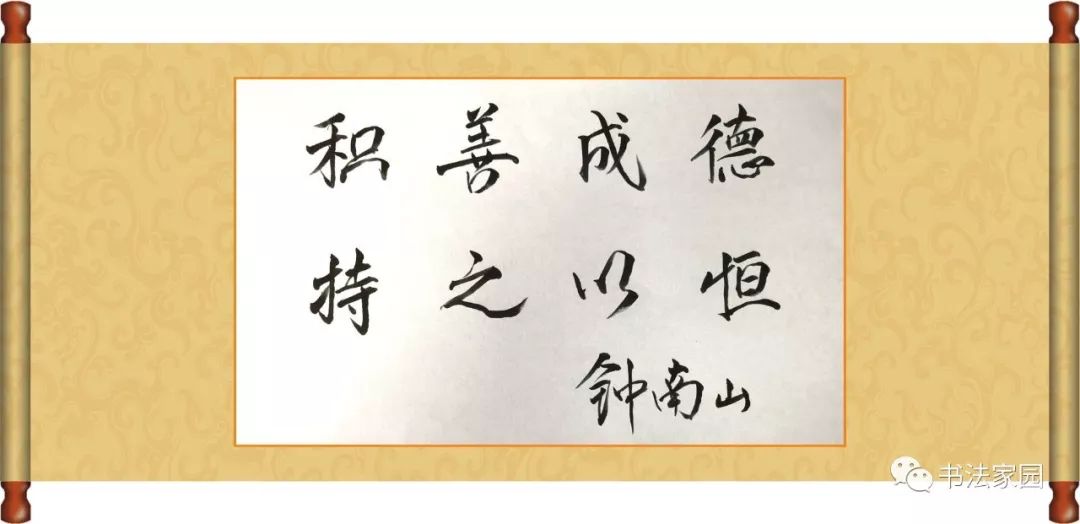 积善成德
持之以恒
钟南山
书法家园